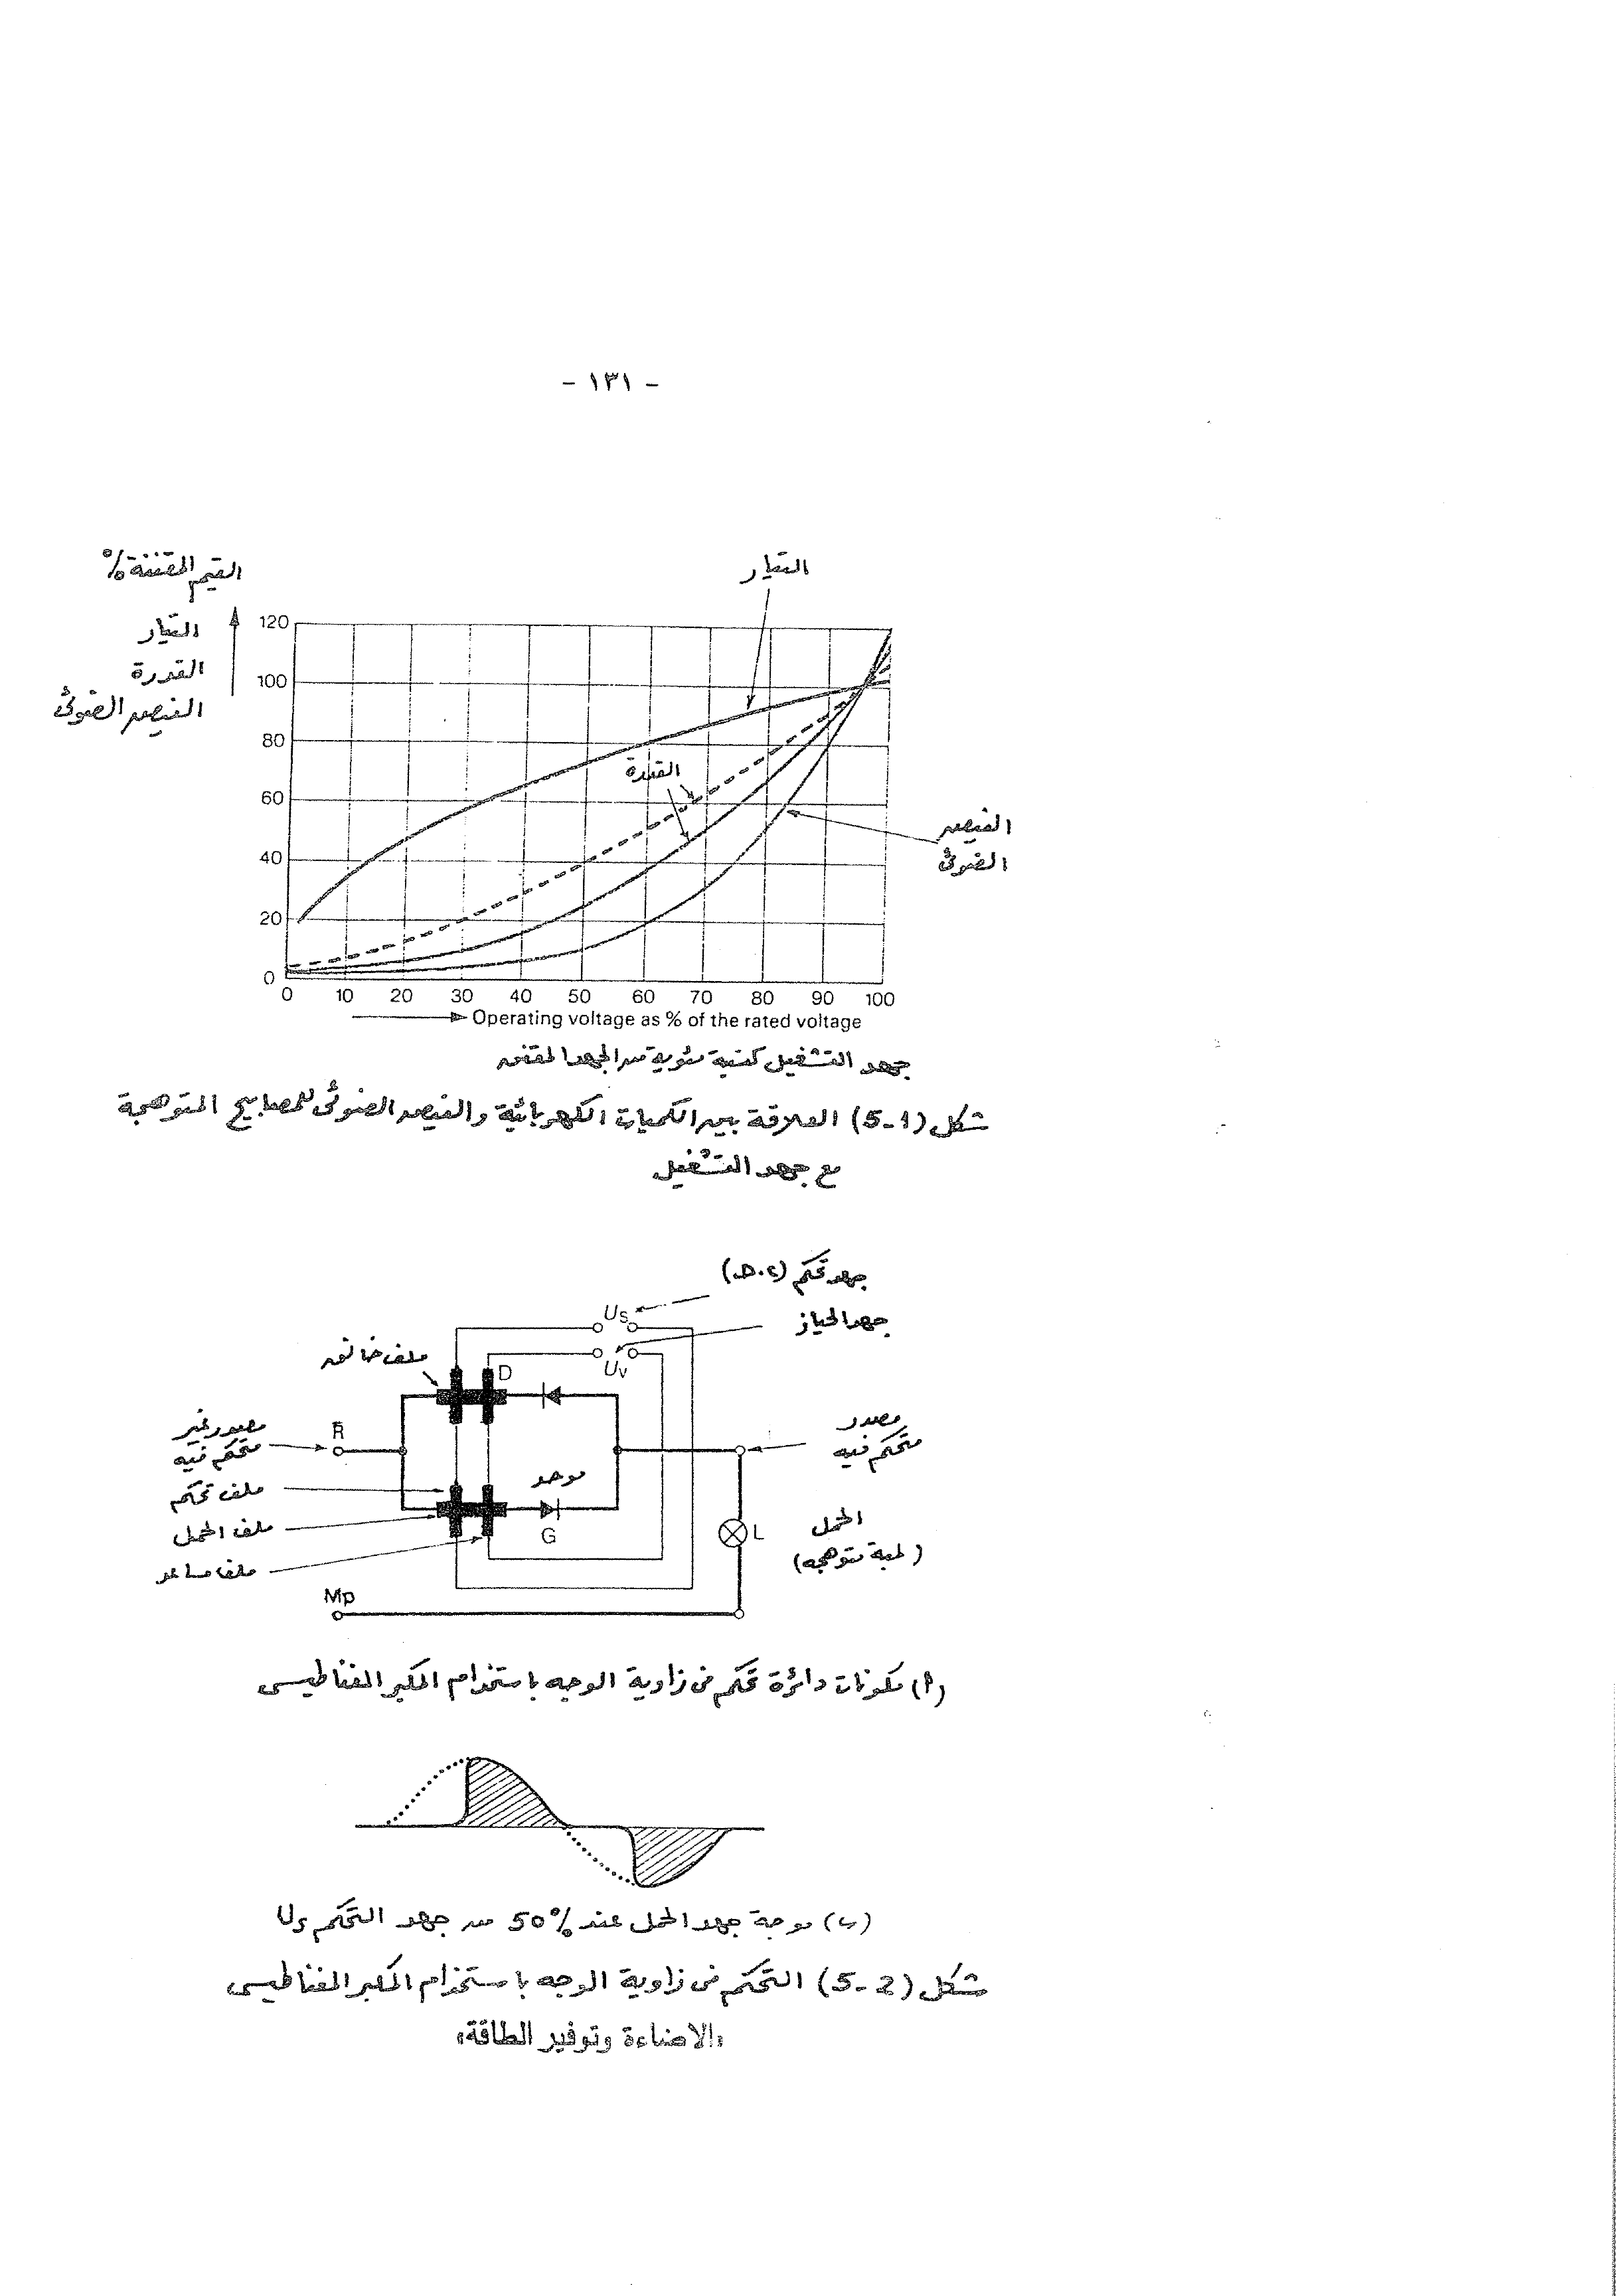 - ١٣١ -
القيم المقننة %
التيار
القدرة
الفيض الضوئى
120
100
80
60
40
20
0
التيار
القدرة
الفيض
الضوئى
0 10 20 30 40 50 60 70 80 90 100
Operating voltage as % of the rated voltage
جهد التشغيل كنسبة مئوية من الجهد المقنن
شكل (1-5) العلاقة بين الكميات الكهربائية والفيض الضوئى للمصابيح المتوهجة
مع جهد التشغيل
جهد تحكم (D.C)
Us
جهد انحياز
Uv
ملف خانق
D
مصدر غير
متحكم فيه
R
ملف تحكم
ملف الحمل
ملف مساعد
موحد
G
مصدر
متحكم فيه
L
الحمل
(لمبة متوهجه)
Mp
(أ) مكونات دائرة تحكم فى زاوية الوجه باستخدام المكبر المغناطيسى
(ب) موجة جهد الحمل عند 50% من جهد التحكم Us
شكل (2-5) التحكم فى زاوية الوجه باستخدام المكبر المغناطيسى
«الاضاءة وتوفير الطاقة»